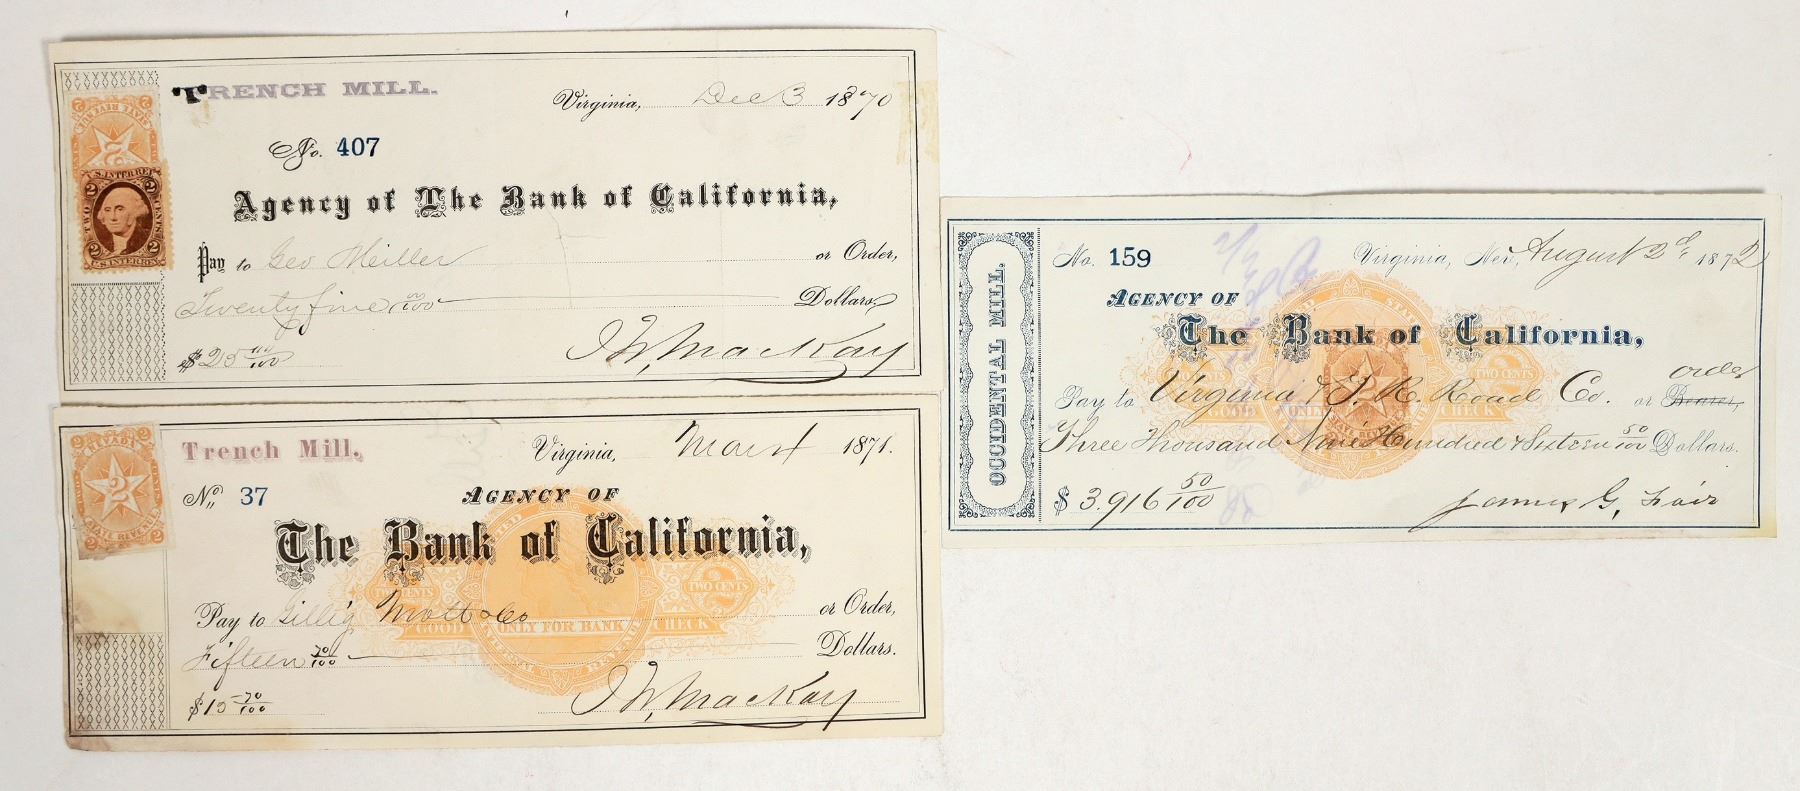 TRENCH MILL.
Virginia, Dec 3 1870
No. 407
Agency of The Bank of California,
Pay to Geo Meiller or Order,
Twenty five 00/100 Dollars,
$25 00/100
J W, Mackay
U.S. INTER. REV.
2 2
TWO CENTS
2 2
U.S. INTER. REV.
STATE REVENUE
2
Trench Mill.
Virginia, March 1871.
No,, 37
AGENCY OF
The Bank of California,
Pay to Gillig Mott & Co or Order,
Fifteen 70/100 Dollars.
$15 70/100
J W, Mackay
NEVADA
TWO CENTS
2
STATE REVENUE
UNITED
TWO CENTS 2 TWO CENTS
GOOD ONLY FOR BANK CHECK
INTERNAL REVENUE
OCCIDENTAL MILL.
No. 159
Virginia, Nev, August 2d, 1872
AGENCY OF
The Bank of California,
Pay to Virginia & T. R. Road Co. or Bearer, order
Three Thousand Nine Hundred & Sixteen 50/100 Dollars.
$ 3.916 50/100
James G, Fair
STATES
TWO CENTS
GOOD ONLY CHECK
2
STATE REVENUE